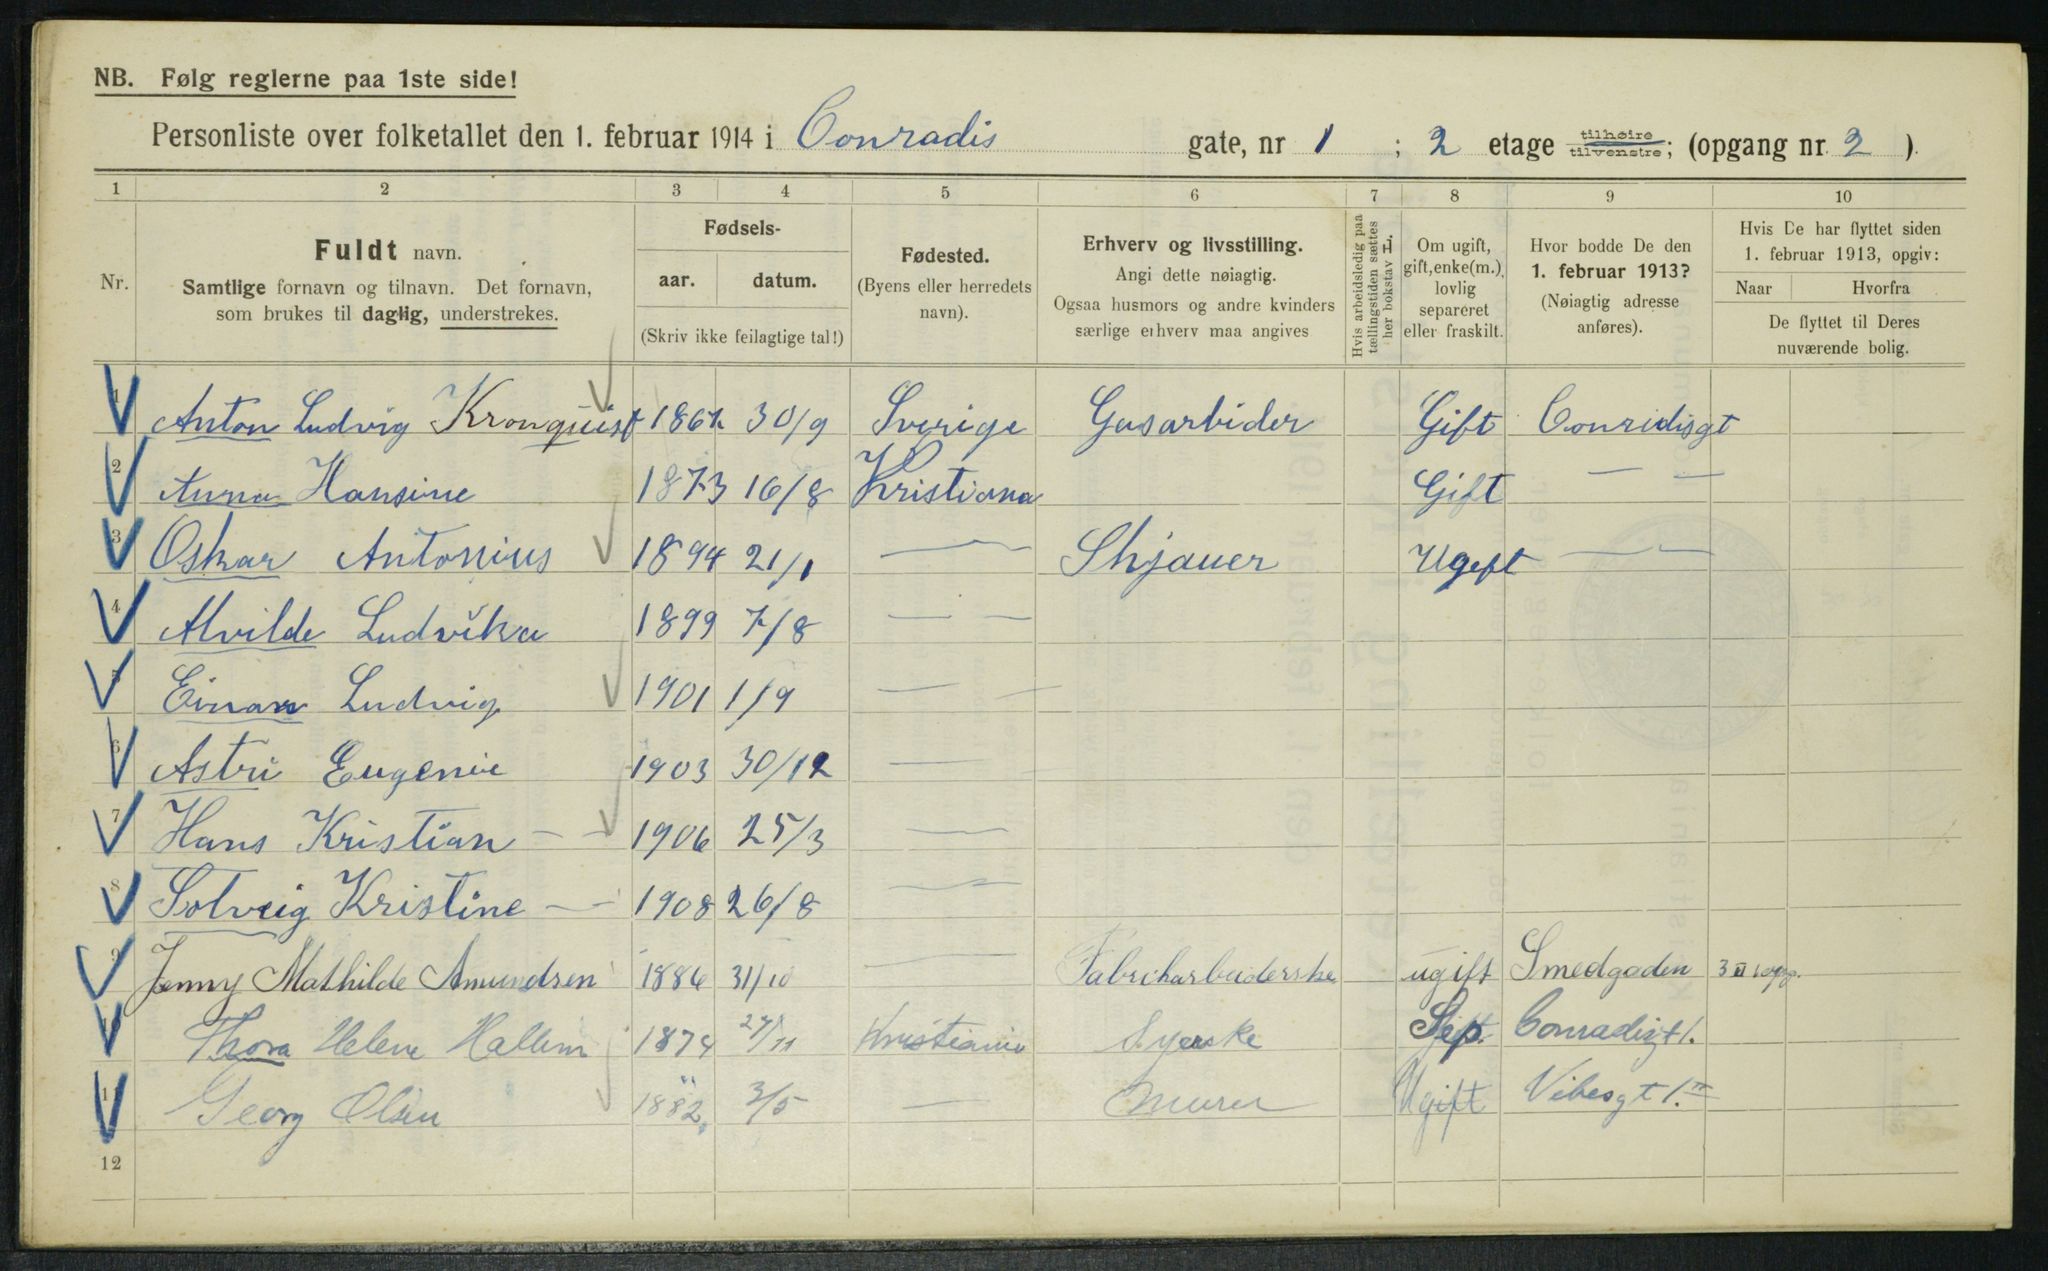 NB. Følg reglerne paa 1ste side!
Personliste over folketallet den 1. februar 1914 i Conradis gate, nr 1 ; 2 etage tilhøire tilvenstre; (opgang nr. 2 ).
1 2 3 4 5 6 7 8 9 10
Nr.
Fuldt navn.
Samtlige fornavn og tilnavn. Det fornavn,
som brukes til daglig, understrekes.
Fødsels-
aar. datum.
(Skriv ikke feilagtige tal!)
Fødested.
(Byens eller herredets
navn).
Erhverv og livsstilling.
Angi dette nøiagtig.
Ogsaa husmors og andre kvinders
særlige erhverv maa angives
Hvis arbeidsledig paa
tællingstiden sættes
her bokstav L.
Om ugift,
gift, enke(m.),
lovlig
separeret
eller fraskilt.
Hvor bodde De den
1. februar 1913?
(Nøiagtig adresse
anføres).
Hvis De har flyttet siden
1. februar 1913, opgiv:
Naar Hvorfra
De flyttet til Deres
nuværende bolig.
1 Anton Ludvig Kronquist 1867 30/9 Sverige Gasarbider Gift Conridisgt
2 Anna Hansine 1873 16/8 Kristiana Gift — —
3 Oskar Antonius 1894 21/1 — — Shjauer Ugift — —
4 Alvilde Ludvika 1899 7/8 — —
5 Einar Ludvig 1901 1/9 — —
6 Astri Eugenie 1903 30/12 —
7 Hans Kristian — — 1906 25/3 —
8 Solveig Kristine — — 1908 26/8 —
9 Jenny Mathilde Amundsen 1886 31/10 — Fabricharbeiderske ugift Smedgaden 3 II opg.
10 Thora Helene Hallem 1874 27/11 Kristiania Syerske Sep. Conradisgt 1.
11 Georg Olsen 1882 3/5 — Murer Ugift Vibesgt 1. II
12